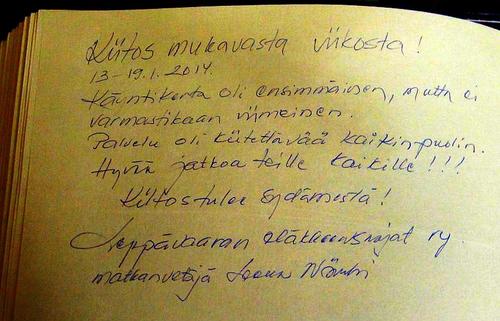 Kiitos mukavasta viikosta!
13-19.1.2014.
Käyntikerta oli ensimmäinen, mutta ei
varmastikaan viimeinen.
Palvelu oli kiitettävää kaikinpuolin.
Hyvää jatkoa teille kaikille!!!
Kiitos tulee sydämestä!
Leppävaaran eläkkeensaajat ry
matkanvetäjä